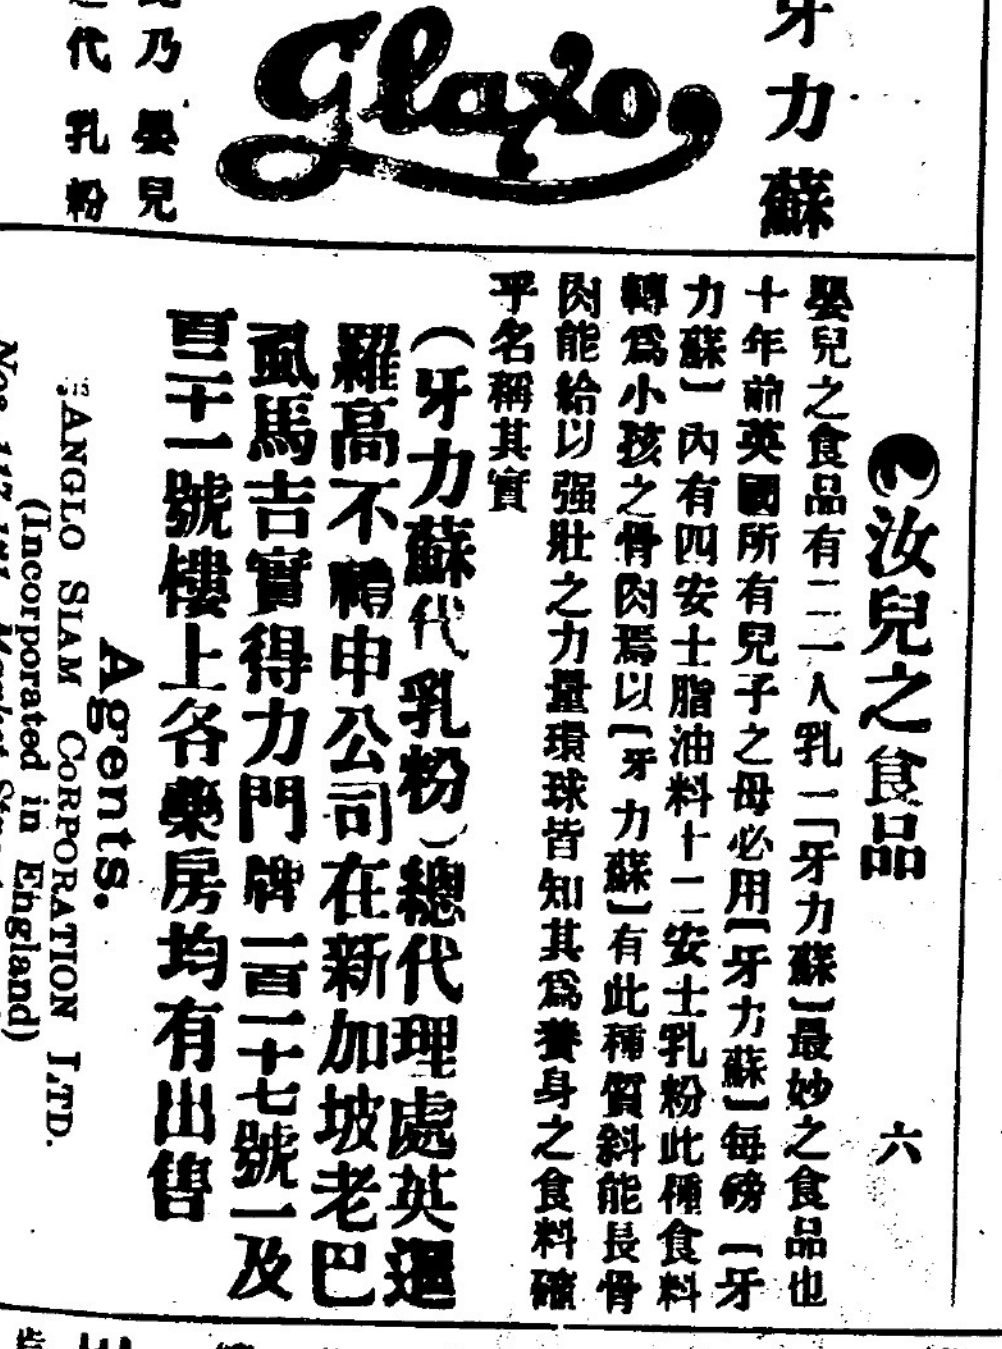 牙力蘇
Glaxo,
乃嬰兒
代乳粉
汝兒之食品 六
嬰兒之食品有二一人乳二「牙力蘇」最妙之食品也
十年前英國所有兒子之母必用「牙力蘇」每磅「牙
力蘇」內有四安士脂油料十二安士乳粉此種食料
轉爲小孩之骨肉焉以「牙力蘇」有此種質料能長骨
肉能給以强壯之力量環球皆知其爲養身之食料確
乎名稱其實
(牙力蘇代乳粉)總代理處英暹
羅高不禮申公司在新加坡老巴
虱馬吉實得力門牌一百一十七號一及
百二十一號樓上各藥房均有出售
Agents.
ANGLO SIAM CORPORATION LTD.
(Incorporated in England)